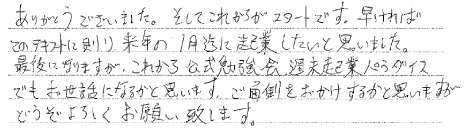 ありがとうございました。そしてこれからがスタートです。早ければ
このテキストに則り、来年の1月迄に起業したいと思いました。
最後になりますが、これから公式勉強会、週末起業パラダイス
でもお世話になるかと思います。ご面倒をおかけするかと思いますが
どうぞよろしくお願い致します。